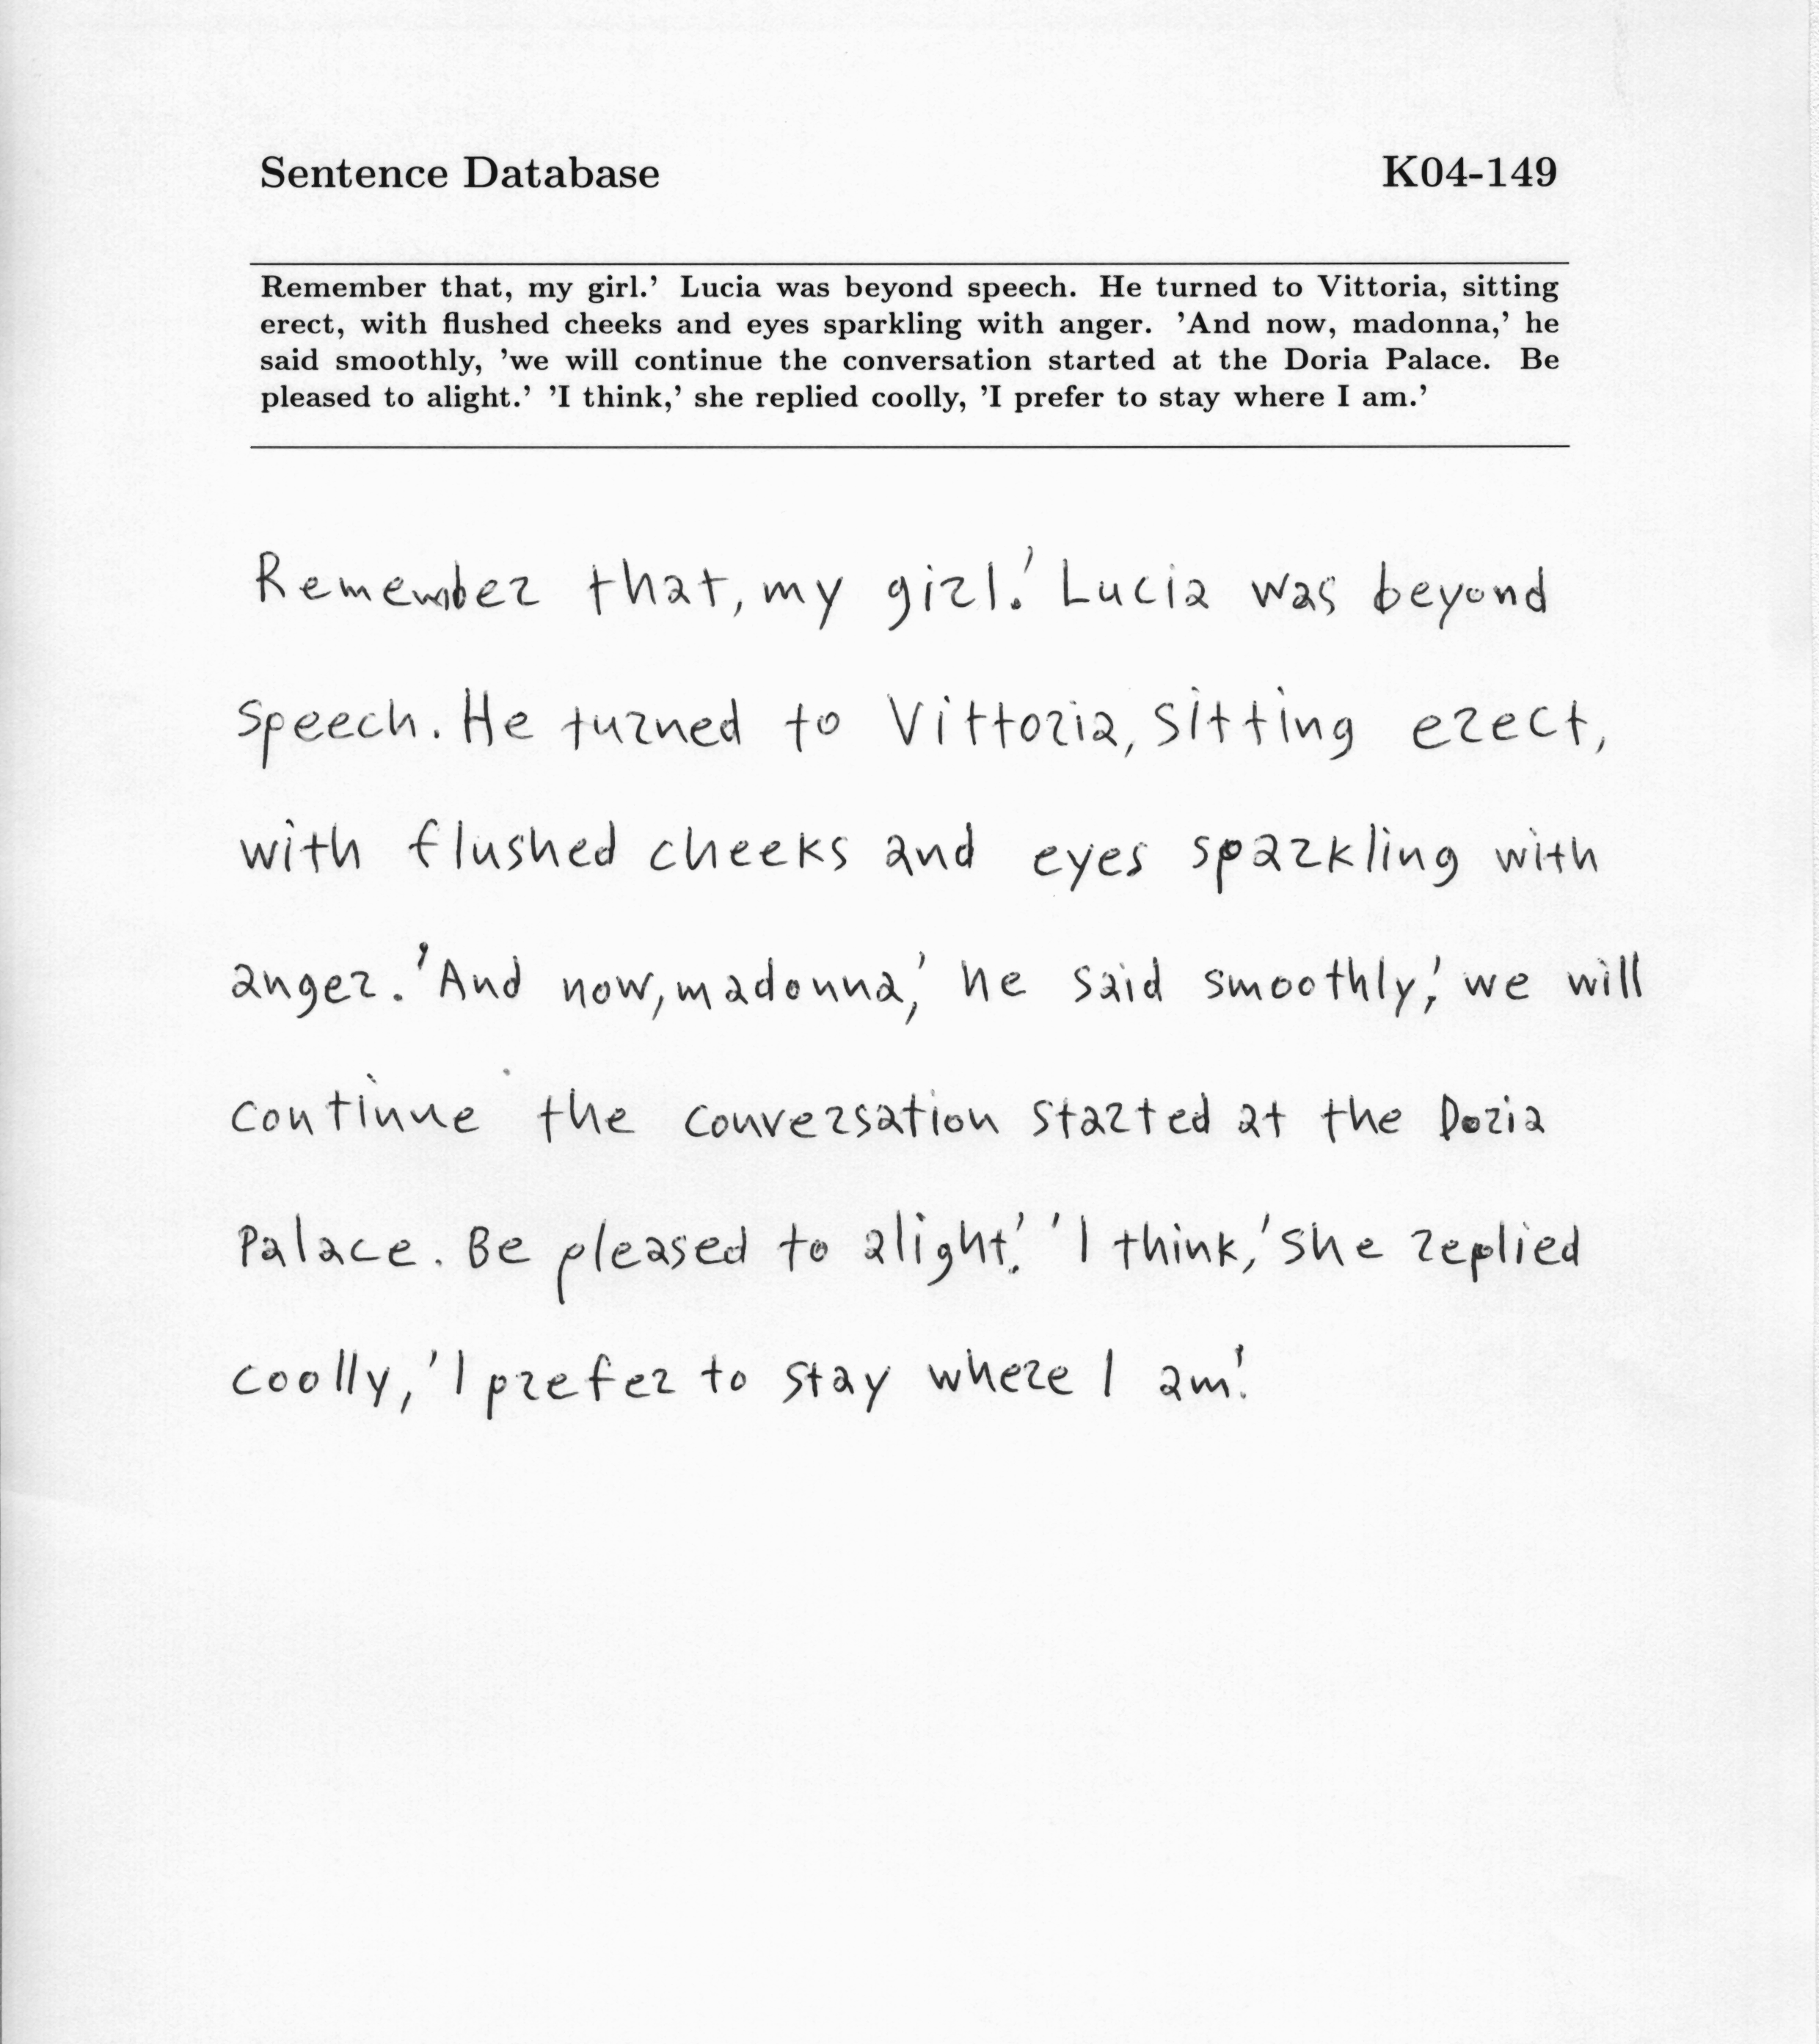 Sentence Database K04-149
Remember that, my girl.’ Lucia was beyond speech. He turned to Vittoria, sitting
erect, with flushed cheeks and eyes sparkling with anger. ’And now, madonna,’ he
said smoothly, ’we will continue the conversation started at the Doria Palace. Be
pleased to alight.’ ’I think,’ she replied coolly, ’I prefer to stay where I am.’
Remember that, my girl.' Lucia was beyond
speech. He turned to Vittoria, sitting erect,
with flushed cheeks and eyes sparkling with
anger. 'And now, madonna,' he said smoothly,' we will
continue the conversation started at the Doria
Palace. Be pleased to alight.' 'I think,' she replied
coolly, 'I prefer to stay where I am.'